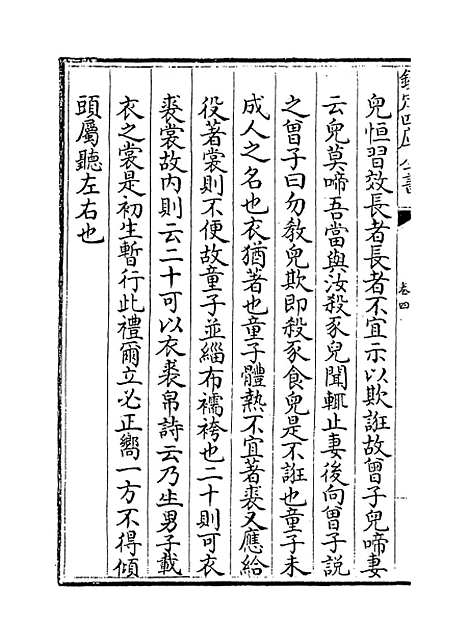 欽定四庫全書
卷四
兒恒習效長者長者不宜示以欺誑故曾子兒啼妻
云兒莫啼吾當與汝殺豕兒聞輒止妻後向曾子說
之曾子曰勿教兒欺即殺豕食兒是不誑也童子未
成人之名也衣猶著也童子體熱不宜著裘又應給
役著裳則不便故童子並緇布襦袴也二十則可衣
裘裳故内則云二十可以衣裘帛詩云乃生男子載
衣之裳是初生暫行此禮爾立必正嚮一方不得傾
頭屬聽左右也